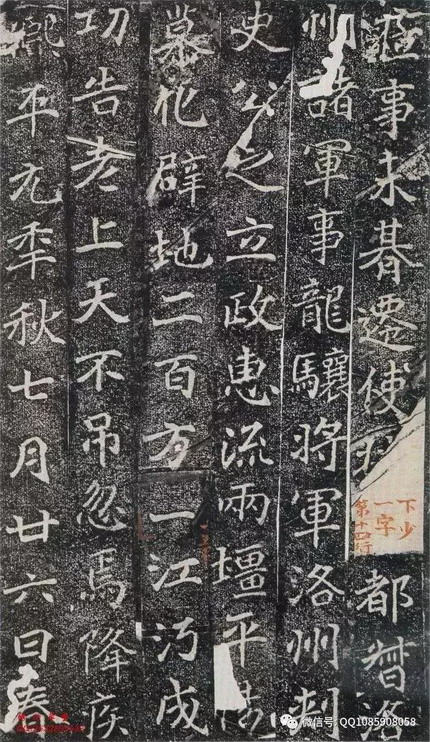 事未朞遷使
都督洛
州諸軍事龍驤將軍洛州刺
史公之立政惠流兩壃平
慕化辟地二百方一江沔成
功告老上天不吊忽焉降疾
平元年秋七月廿六日春
下少
一字
第十四行
微信号: QQ1085908058